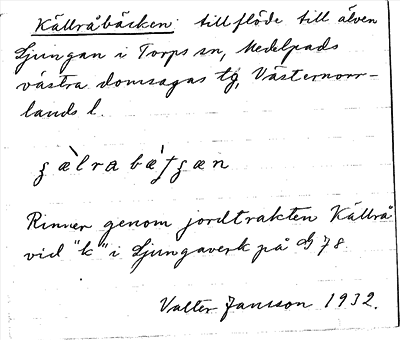 Källråbäcken: tillflöde till älven
Ljungan i Torps sn, Medelpads
västra domsagas tg, Västernorr-
lands l.
Rinner genom jordtrakten Källrå
vid "k" i Ljungaverk på G 78
Valter Jansson 1932.